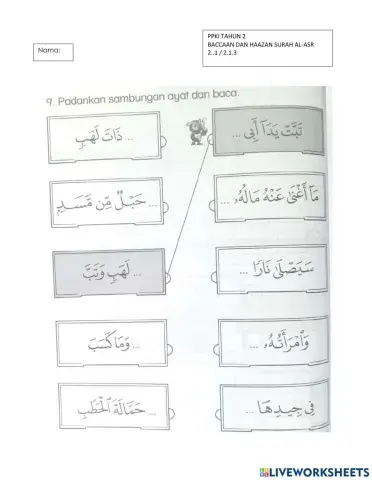 PPKI TAHUN 2
BACCAAN DAN HAAZAN SURAH AL-ASR
2..1 / 2.1.3
Nama:
9. Padankan sambungan ayat dan baca.
تَبَّتْ يَدَآ أَبِى ...
... ذَاتَ لَهَبٍ
مَآ أَغْنَىٰ عَنْهُ مَالُهُۥ ...
... حَبْلٌ مِّن مَّسَدٍ
سَيَصْلَىٰ نَارًا ...
... لَهَبٍ وَتَبَّ
وَٱمْرَأَتُهُۥ ...
... وَمَا كَسَبَ
فِى جِيدِهَا ...
... حَمَّالَةَ ٱلْحَطَبِ
LIVEWORKSHEETS